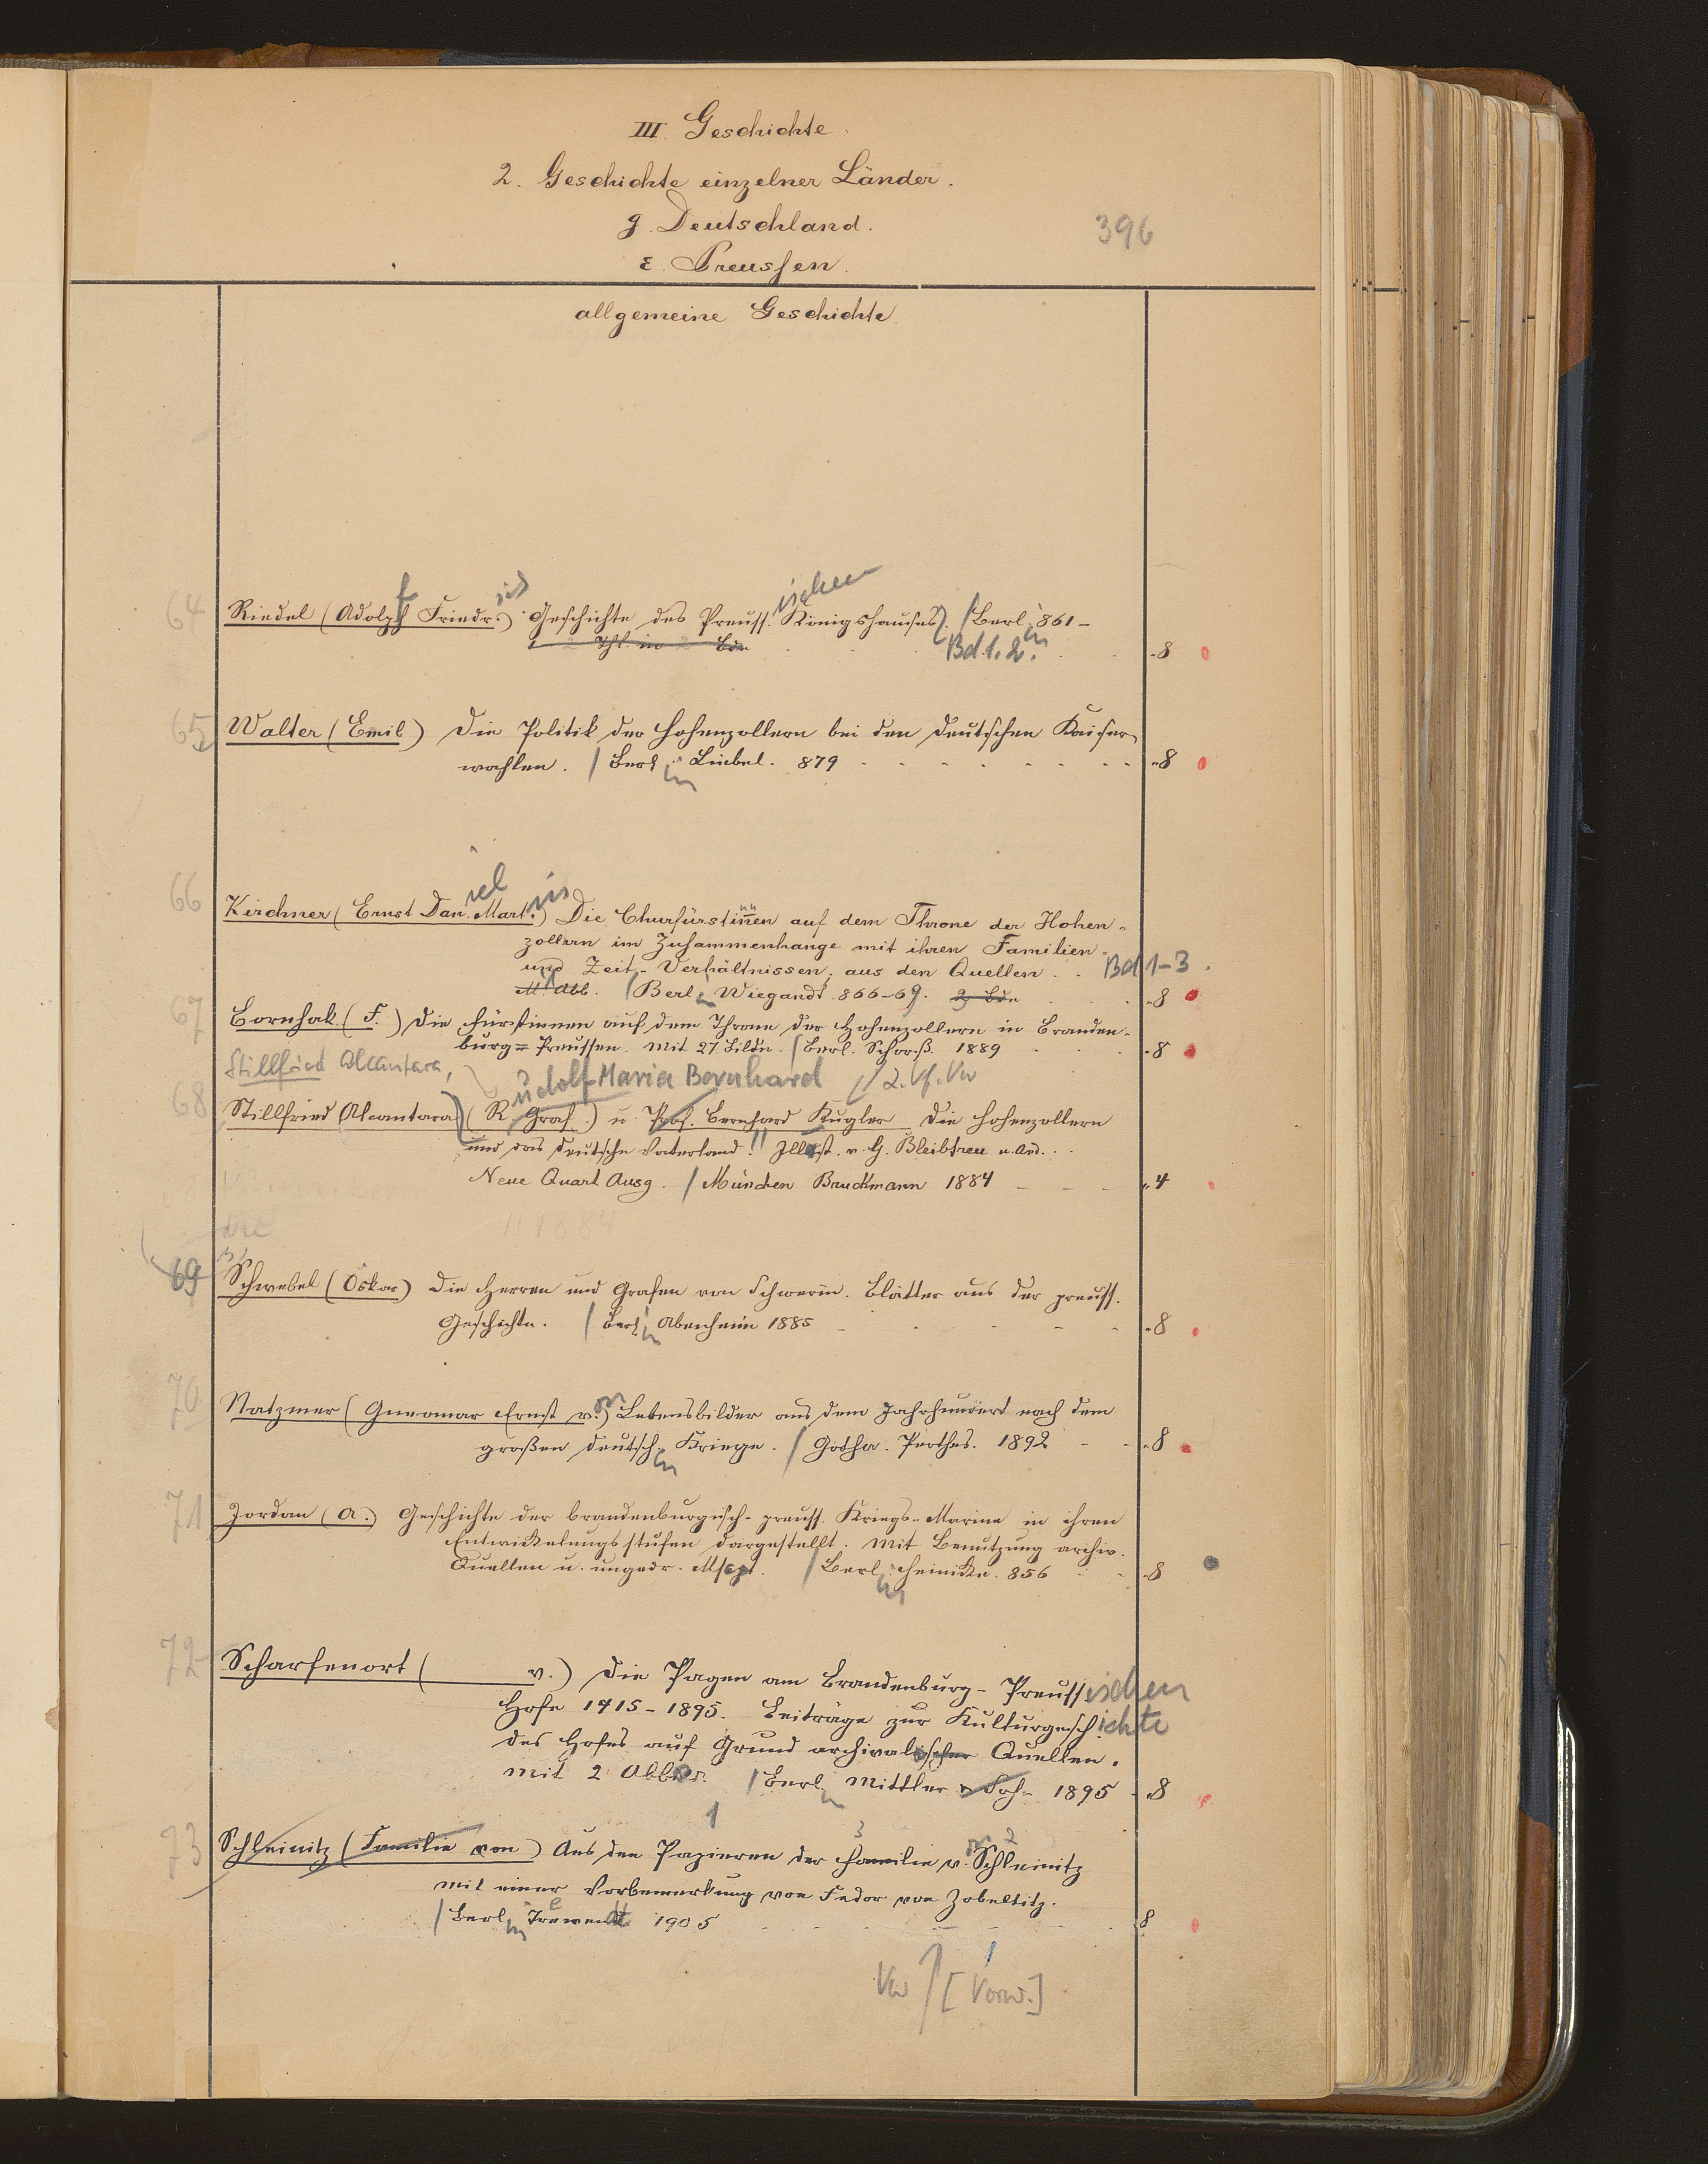 III. Geschichte.
2. Geschichte einzelner Länder.
g. Deutschland.
396
ε. Preussen.
allgemeine Geschichte.
64 Riedel (Adolph Friedr.) Geschichte des Preuss.ischen Königshauses. / Berl. 861 –
Thl. in Bde. Bd. 1. 2. 8
65 Walter (Emil) Die Politik der Hohenzollern bei den deutschen Kaiser-
wahlen. / Berl.in Liebel. 879 8
66 Kirchner (Ernst Dan.iel Mart.in) Die Churfürstinnen auf dem Throne der Hohen-
zollern im Zusammenhange mit ihren Familien-
und Zeit-Verhältnissen, aus den Quellen. Bd 1-3.
M. Abb. / Berl.in Wiegandt. 866-69. 2 Bde 8
67 Bornhak (F.) Die Fürstinnen auf dem Throne der Hohenzollern in Branden-
burg=Preussen. Mit 27 Bildn. / Berl. Schorß. 1889 8
Stillfried Alcantara, udolf Maria Bernhard / 2. Vf. Vw
68 Stillfried Alcantara (R. Graf.) u. Prof. Bernhard Kugler Die Hohenzollern
und das deutsche Vaterland. Illust. v. G. Bleibtreu u. And.
Neue Quart Ausg. / München Bruckmann 1884 4
69 Schwebel (Oskar) Die Herren und Grafen von Schwerin. Blätter aus der preuss.
Geschichte. / Berl.in Abenheim 1885 8
70 Natzmer (Gneomar Ernst v.) Lebensbilder aus dem Jahrhundert nach dem
großen deutsch.en Kriege. / Gotha. Perthes. 1892 8
71 Jordan (A.) Geschichte der brandenburgisch-preuss. Kriegs-Marine in ihren
Entwickelungsstufen dargestellt. Mit Benutzung archiv.
Quellen u. ungedr. Mscpt. / Berl.in Heinicke. 856 8
72 Scharfenort ( v.) Die Pagen am Brandenburg-Preussischen
Hofe 1415-1895. Beiträge zur Kulturgeschichte
des Hofes auf Grund archivalischer Quellen.
mit 2 Abbild. / Berl.in Mittler & Soh. 1895 8
1 3 2
73 Schleinitz (Familie von) Aus den Papieren der Familie v. Schleinitz
mit einer Vorbemerkung von Fedor von Zobeltitz.
/ Berl.in Trewendt 1905 8
Vw [Vorw.]